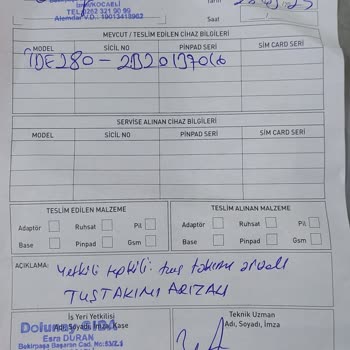 İzmit/KOCAELİ
TEL:0262 321 90 99
Alemdar V.D.: 19013413962
Tarih
Saat
MEVCUT / TESLİM EDİLEN CİHAZ BİLGİLERİ
MODEL SİCİL NO PİNPAD SERİ SİM CARD SERİ
IDE280 - 2B20137016
SERVİSE ALINAN CİHAZ BİLGİLERİ
MODEL SİCİL NO PİNPAD SERİ SİM CARD SERİ
TESLİM EDİLEN MALZEME TESLİM ALINAN MALZEME
Adaptör Ruhsat Pil Adaptör Ruhsat Pil
Base Pinpad Gsm Base Pinpad Gsm
AÇIKLAMA: tuş takımı
TUŞTAKIMI ARIZALI
İş Yeri Yetkilisi Teknik Uzman
Adı, Soyadı, İmza, Kaşe Adı, Soyadı, İmza
Esra DURAN